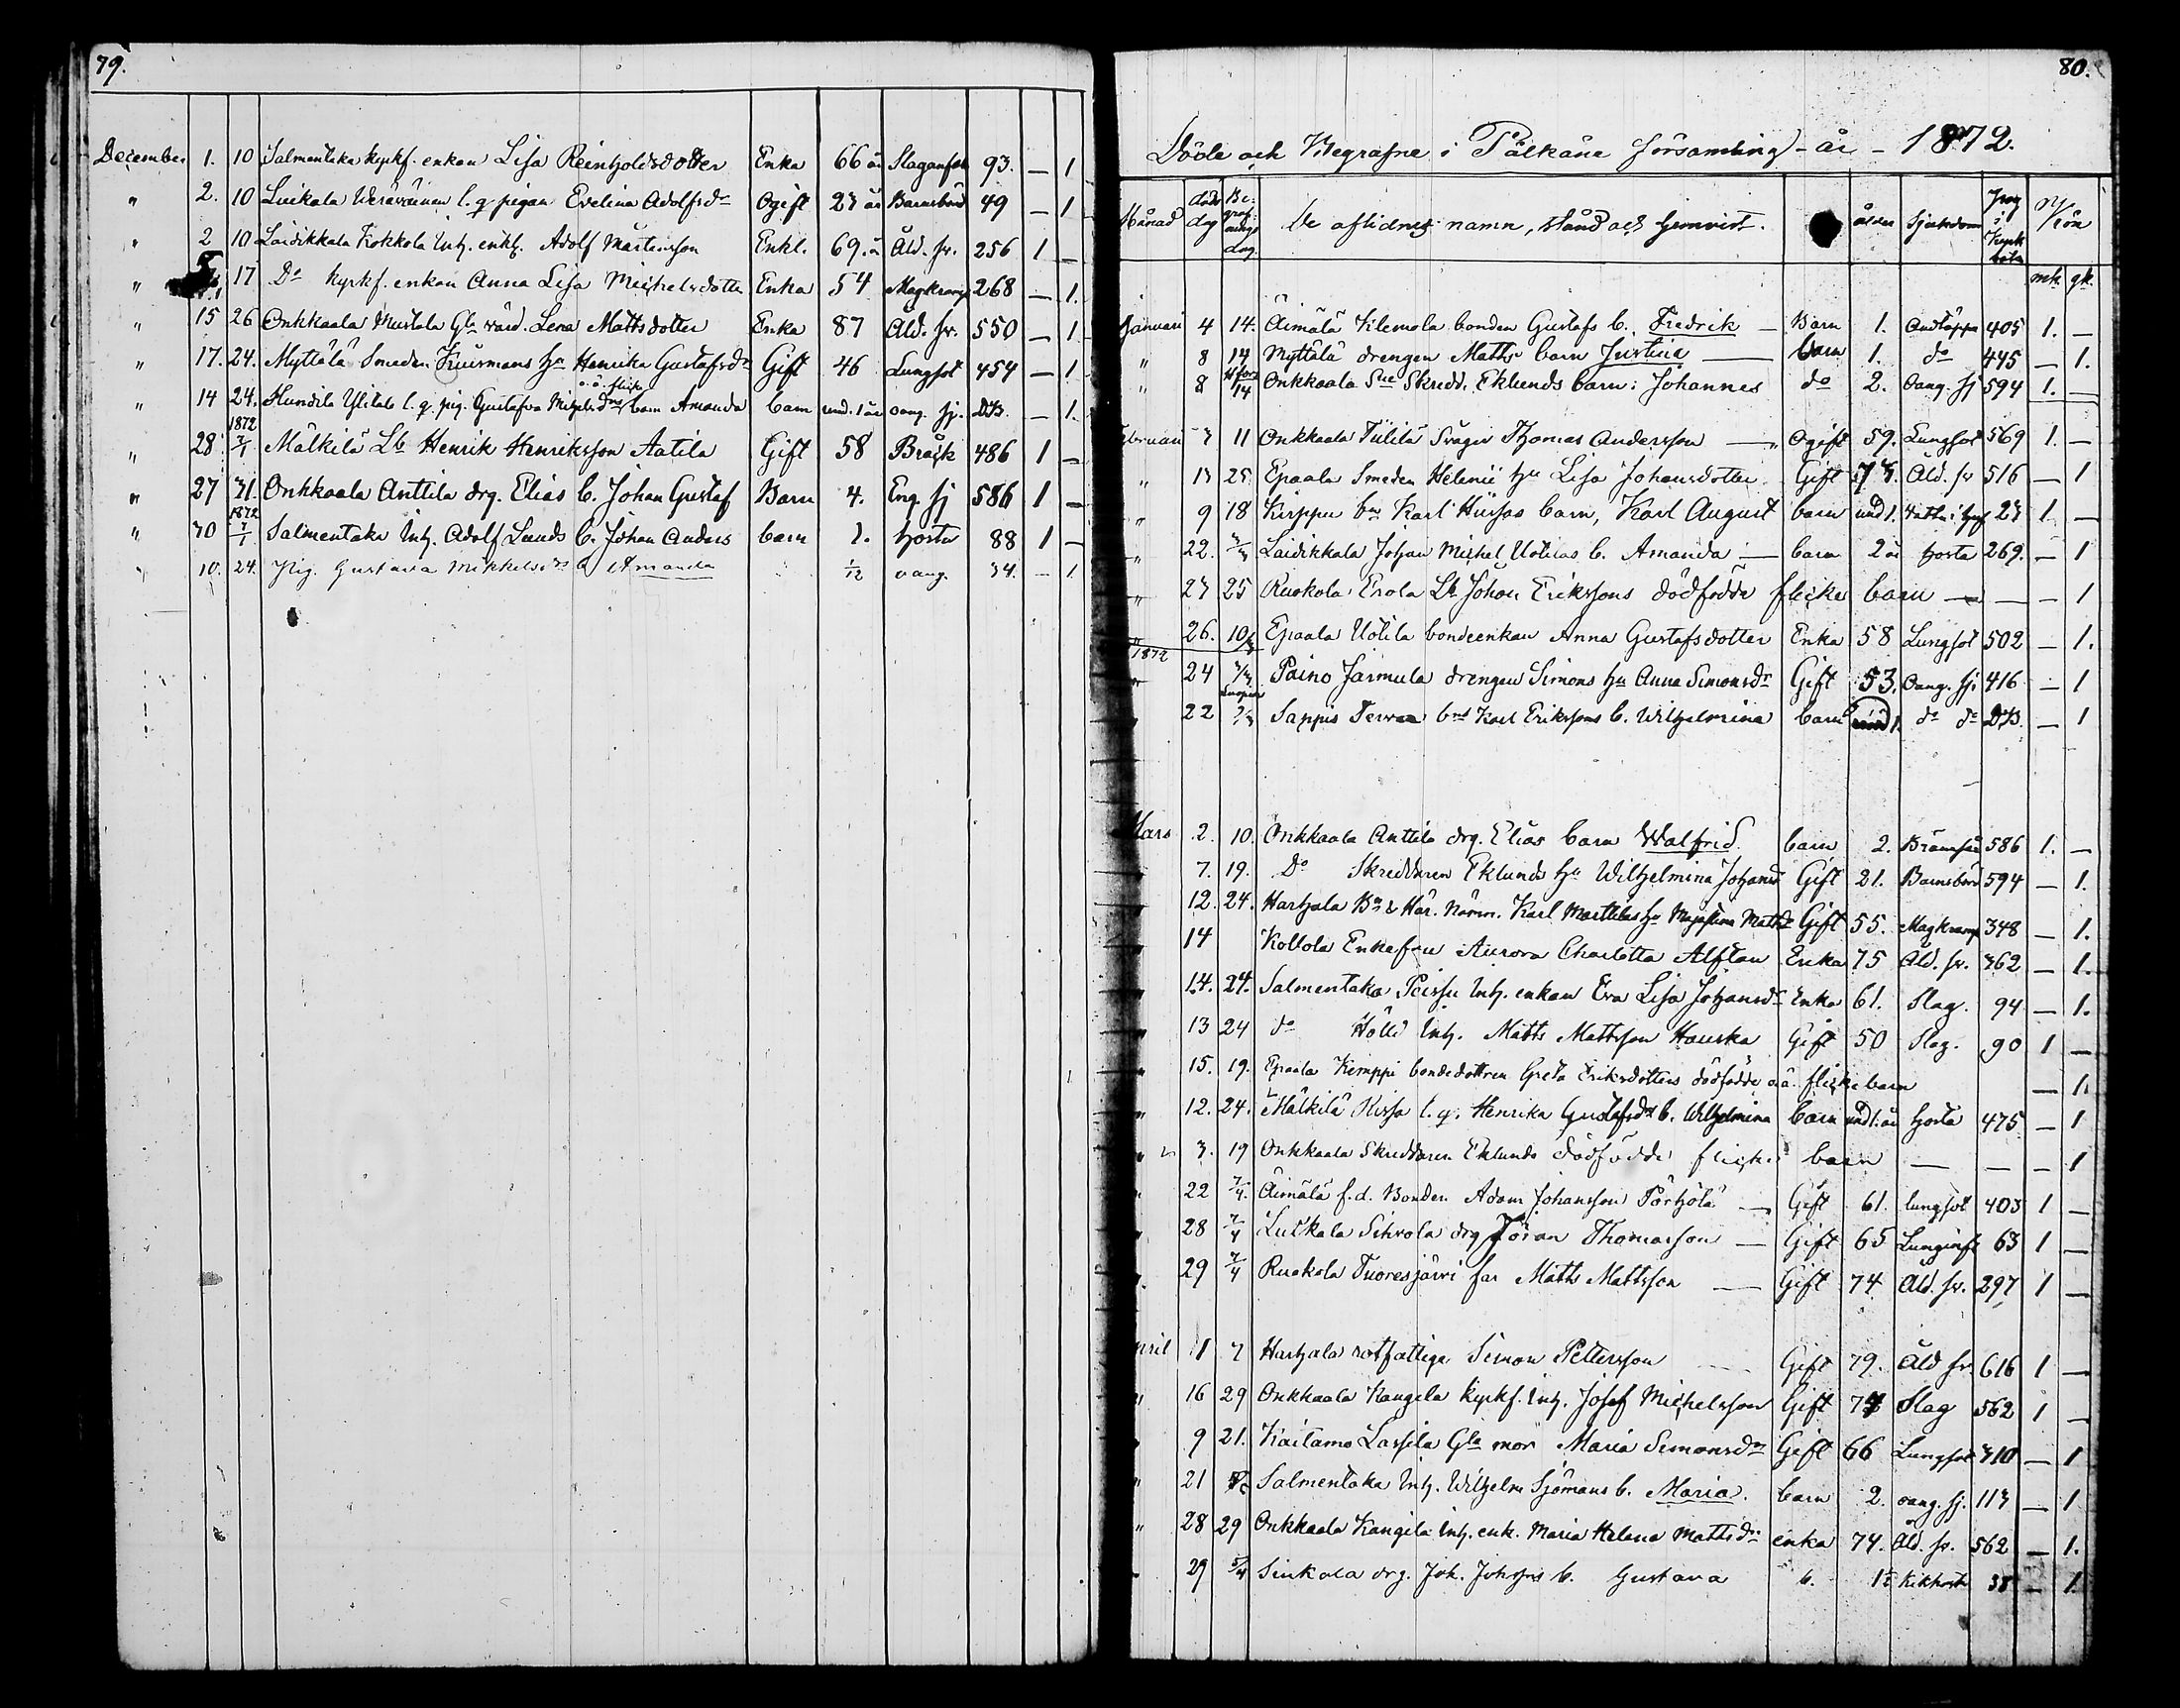 79.
December 1. 10 Salmentaka kyrkf. enkan Lisa Reinholdsdotter Enka 66 år Slaganfall 93. — 1
" 2. 10 Luikala l. q pigan Evelina Adolfsdr Ogift 23 år Barnsbörd 49 — 1
" 2 10 Laidikkala Kokkola Inh. enkl. Adolf Mårtensson Enkl. 69. å Åld. sv. 256 1 —
" 17 Do kyrkf. enkan Anna Lisa Michelsdotter Enka 54 Magkramp 268 — 1.
" 15 26 Onkkaala Mustala Gla värd. Lena Mattsdotter Enka 87 Åld. sv. 550 — 1
" 17. 24. Myttälä Smeden Kuurmans hu Henrika Gustafsdr Gift 46 Lungsot 454 — 1
o. ä. flick
" 14 24. Kundila Ylitalo l. q. pig. Gustafva barn Amanda barn und. 1 år oang. sj. — 1.
1872
" 28 7/1 Mälkilä Lb Henrik Henriksson Aatila Gift 58 Bråck 486 1 —
" 27 31. Onkkaala Anttila drg. Elias b. Johan Gustaf Barn 4. Eng. sj 586 1 —
1872
" 30 7/1 Salmentaka Inh. Adolf Lunds b. Johan Anders barn 2. hosta 88 1 —
" 10. 24. Pig. Gustava Mikkelsdr b Amanda " 1/12 oang. 34. — 1
80.
Döde och Begrafne i Pälkäne församling - år - 1872.
Månad döds dag Be-grafnings dag De aflidnes namn, stånd och hemvist. ålder Sjukdom Pag i Kyrk boken Kön
mk. qk.
Januari 4 14. Äimälä Klemola bonden Gustafs b. Fredrik — Barn 1. Andtäppa 405 1. —
" 8 14 Myttälä drengen Matts barn Justina — barn 1. do 445 — 1.
" 8 14 Onkkaala Skredd. Eklunds barn: Johannes do 2. Oang. sj 594 1. —
Februari 3 11 Onkkaala Tulila Svåger Thomas Andersson — Ogift 59. Lungsot 569 1. —
" 13 25. Epaala Smeden Helenii hu Lisa Johansdotter Gift 78. Åld. sv 516 — 1
" 9 18 Kirppu bn Karl barn, Karl August barn und 1. 23 1. —
" 22. 3/3 Laidikkala Johan Michel Uotilas b. Amanda — barn 2 år hosta 269. — 1
" 23 25 Ruokola Erola Lb Johan Erikssons dödfödde flicke barn — — — 1
" 26. 10/3 Epaala Uotila bondeenkan Anna Gustafsdotter Enka 58 Lungsot 502 — 1.
1872
" 24 3/3 Paino Jarmula drengen Simons hu Anna Simonsdr Gift 53. Oang. sj. 416 — 1
" 22 3/3 Sappis bns Karl Erikssons b. Wilhelmina barn und 1. do do — 1
Mars 2. 10. Onkkaala Anttila drg. Elias barn Walfrid barn 2. Brännsår 586 1. —
7. 19. Do Skreddaren Eklunds hu Wilhelmina Johansd Gift 21. Barnsbörd 594 — 1.
12. 24. Harhala Bn & Här. Nämn. Karl Marttilas hu Majastina Mattsdr Gift 55. Magkramp 348 — 1.
14 Kollola Enkefru Aurora Charlotta Alftan Enka 75 Åld. sv. 362 — 1.
14. 24. Salmentaka Peissu Inh. enkan Eva Lisa Johansdr Enka 61. Slag. 94 — 1.
13 24 do Höllö Inh. Matts Mattsson Hauska Gift 50 Slag. 90 1 —
15. 19. Epaala Kemppi bondedottren Greta Eriksdotters dödfödde o.ä. flickebarn — 1.
" 12. 24. Mälkilä Kirja l. q. Henrika Gustafsdr b. Wilhelmina barn und 1. år hosta 475 — 1
" 3. 19 Onkkaala Skreddaren Eklunds dödfödde flicke barn — — — 1
" 22 7/4. Äimälä f.d. Bonden Adam Johansson Pärhölä — Gift 61. lungsot 403 1 —
28 7/4 Luikala Sihvola drg Jöran Thomasson — Gift 65 Lunginfl 63 1 —
29 7/4 Ruokola Tuoresjärvi far Matts Mattsson — Gift 74 Åld. sv. 297 1 —
April 1 7 Harhala rotfattige Simon Pettersson Gift 79. Åld sv 616 1 —
" 16 29 Onkkaala Kangila kyrkf. Inh. Josef Michelsson Gift 74 Slag 562 1 —
9 21. Kaitamo Lassila Gla mor Maria Simonsdr Gift 66 Lungsot 310 — 1
" 21 Salmentaka Inh. Wilhelm Sjömans b. Maria. barn 2. oang. sj. 113 — 1
" 28 29 Onkkaala Kangila Inh. enk. Maria Helena Mattsdr enka 74. Åld. sv. 562 — 1.
29 5/4 Sinkola drg. Joh. Johssons b. Gustava b. 1½ Kikhosta 38 — 1.